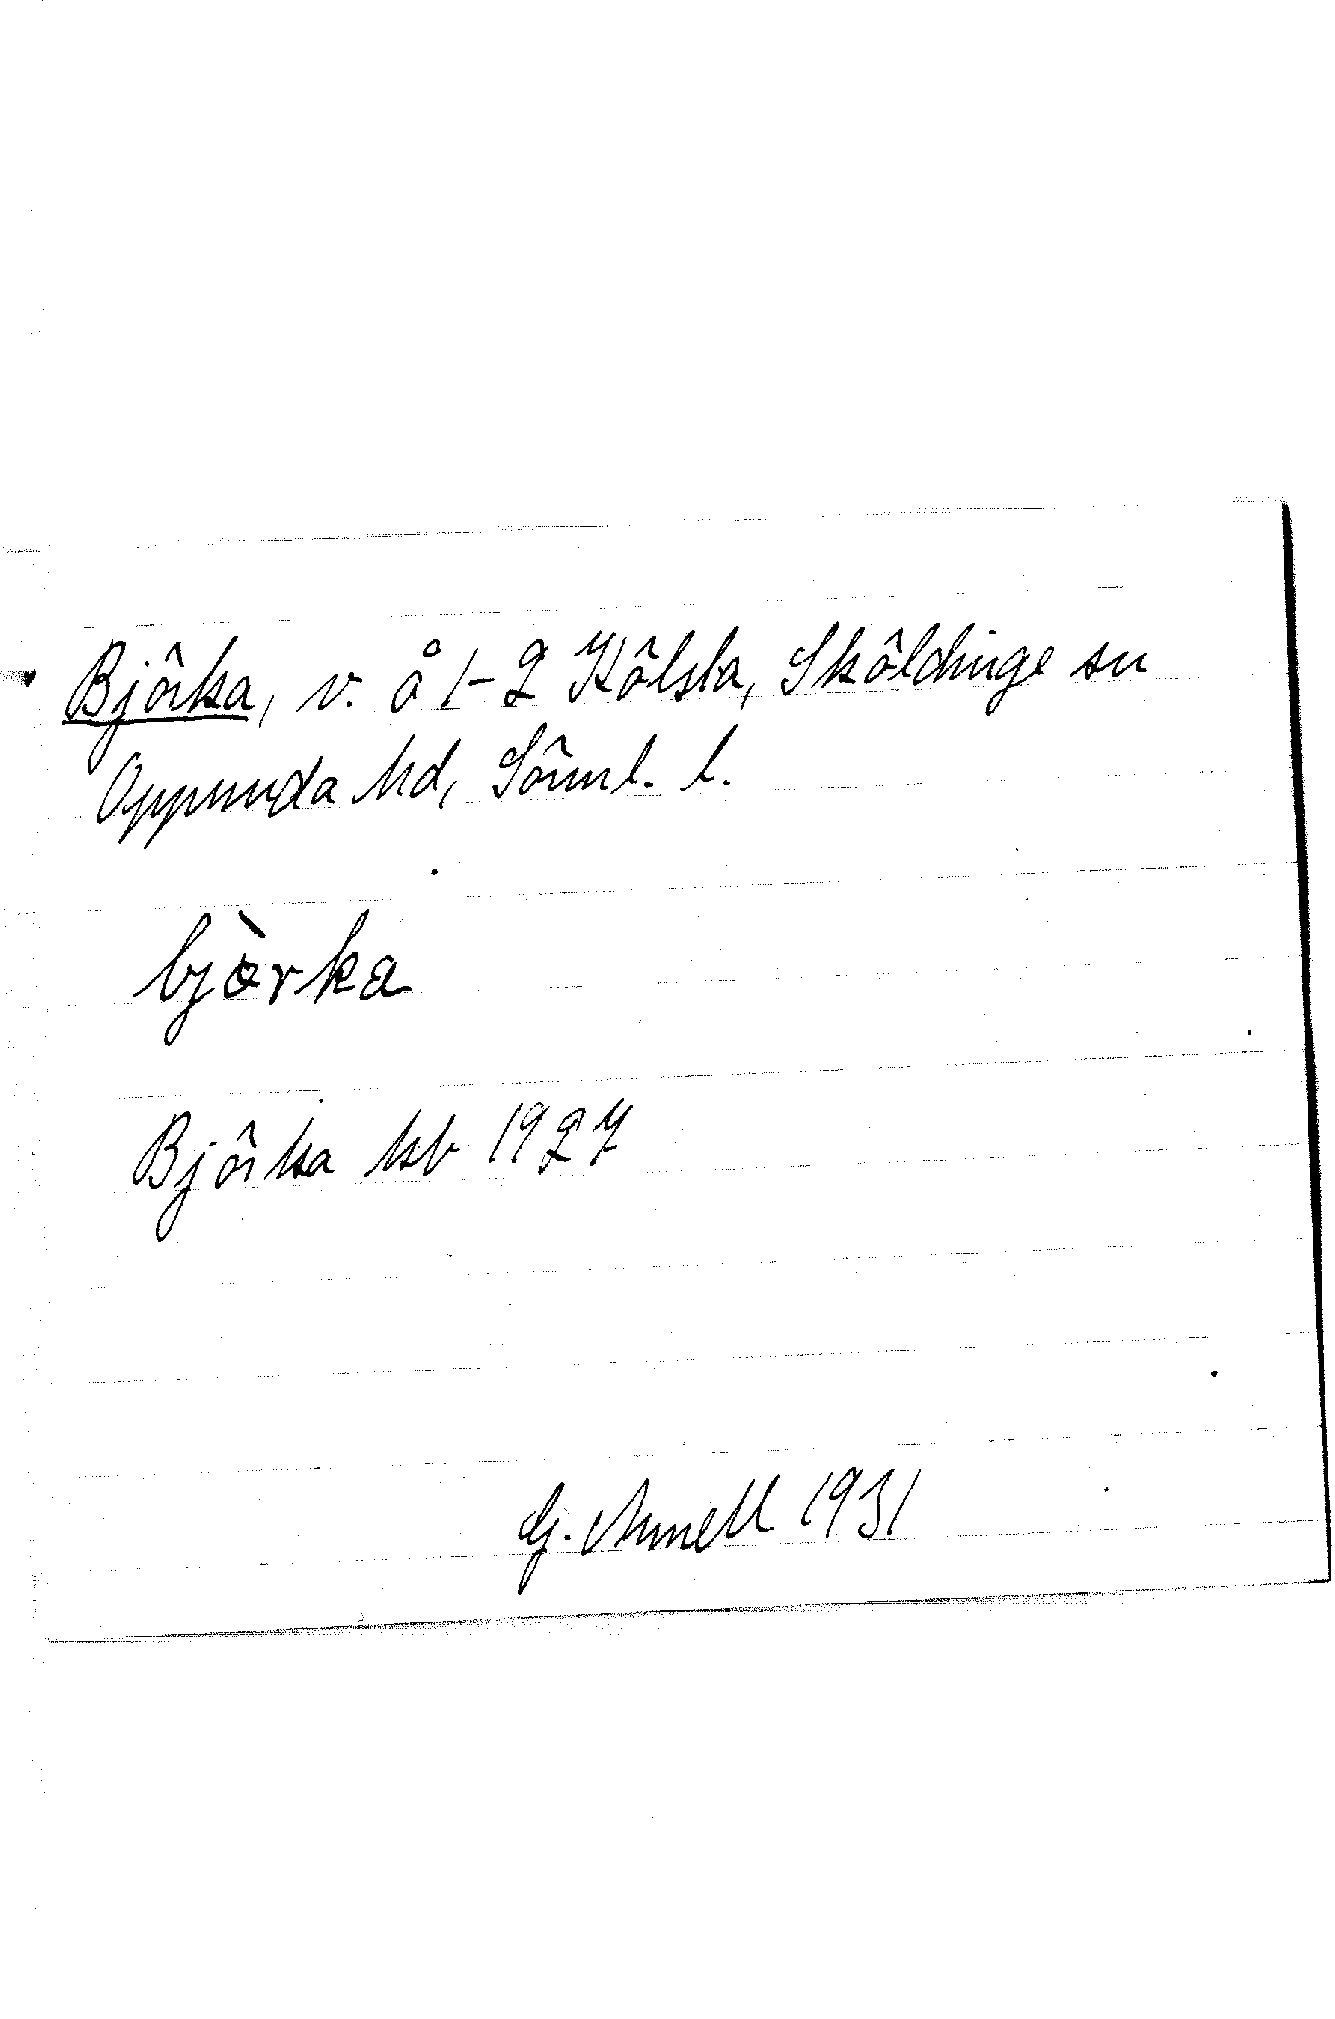 Björka, v. å 1-2 Kölsta, Sköldinge sn
Oppunda hd, Sörml. l.
bjòrka
Björka kb 1927
G. Annell 1931